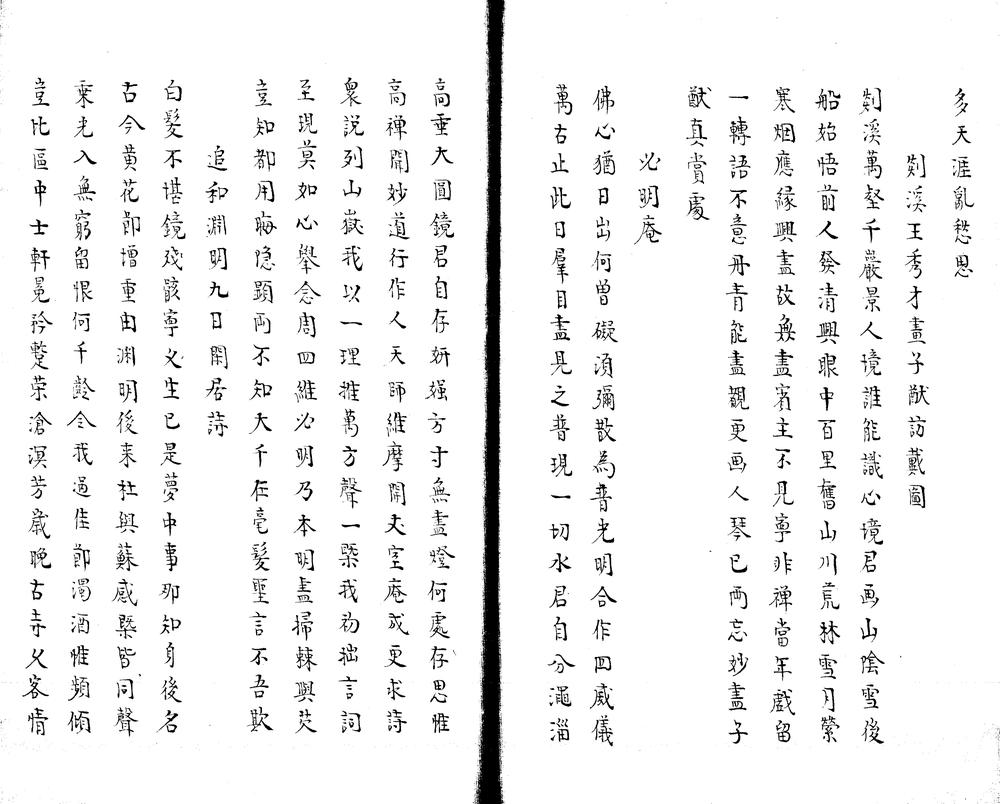 多天涯亂愁思
剡溪王秀才畫子猷訪戴圖
剡溪萬壑千巖景人境誰能識心境君画山陰雪後
船始悟前人發清興眼中百里舊山川荒林雪月縈
寒烟應緣興盡故無盡賓主不見寧非禪當年戲留
一轉語不意丹青能盡覩更画人琴已兩忘妙盡子
猷真賞處
必明庵
佛心猶日出何曾礙須彌散為普光明合作四威儀
萬古止此日羣目盡見之普現一切水君自分澠淄
高垂大圓鏡君自存妍媸方寸無盡燈何處存思惟
高禪聞妙道行作人天師維摩開丈室庵成更求詩
衆說列山嶽我以一理推萬方聲一槩我初拙言詞
至現莫如心舉念周四維必明乃本明盡掃棘與茨
豈知都用晦隐顕两不知大千在毫髮聖言不吾欺
追和淵明九日閑居詩
白髮不堪鏡殘骸寧久生已是夢中事那知身後名
古今黄花節增重由渊明後来杜與蘇感槩皆同聲
乗光入無窮留恨何千齡令我過佳節濁酒惟頻傾
豈比區中士軒冕矜蹔荣滄溟芳歲晚古寺久客情